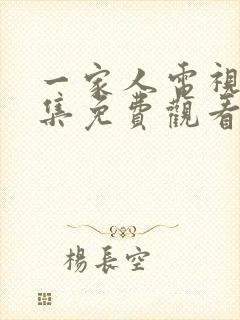 一家人電視
集免費觀看
楊長空